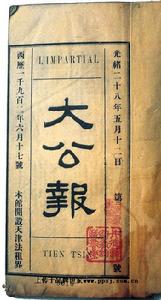 光緒二十八年五月十二日 第 號
L'IMPARTIAL
大公報
TIEN TSIN
西歷一千九百二年六月十七號
本館開設天津法租界